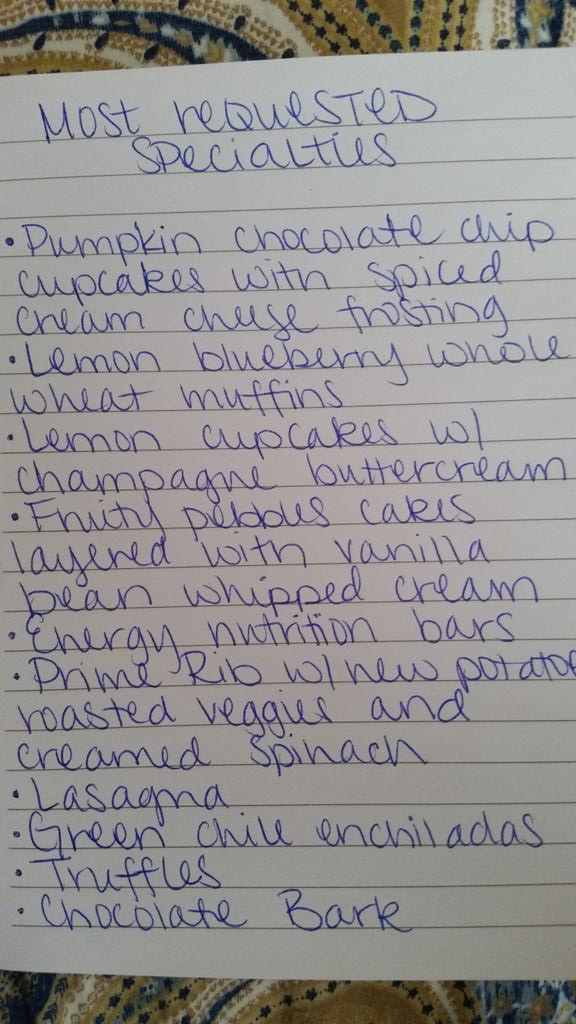 Most requested
Specialties
• Pumpkin chocolate chip
cupcakes with spiced
cream cheese frosting
• Lemon blueberry whole
wheat muffins
• Lemon cupcakes w/
champagne buttercream
• Fruity pebbles cakes
layered with vanilla
bean whipped cream
• Energy nutrition bars
• Prime Rib w/ new potatoe
roasted veggies and
creamed spinach
• Lasagna
• Green chile enchiladas
• Truffles
• Chocolate Bark